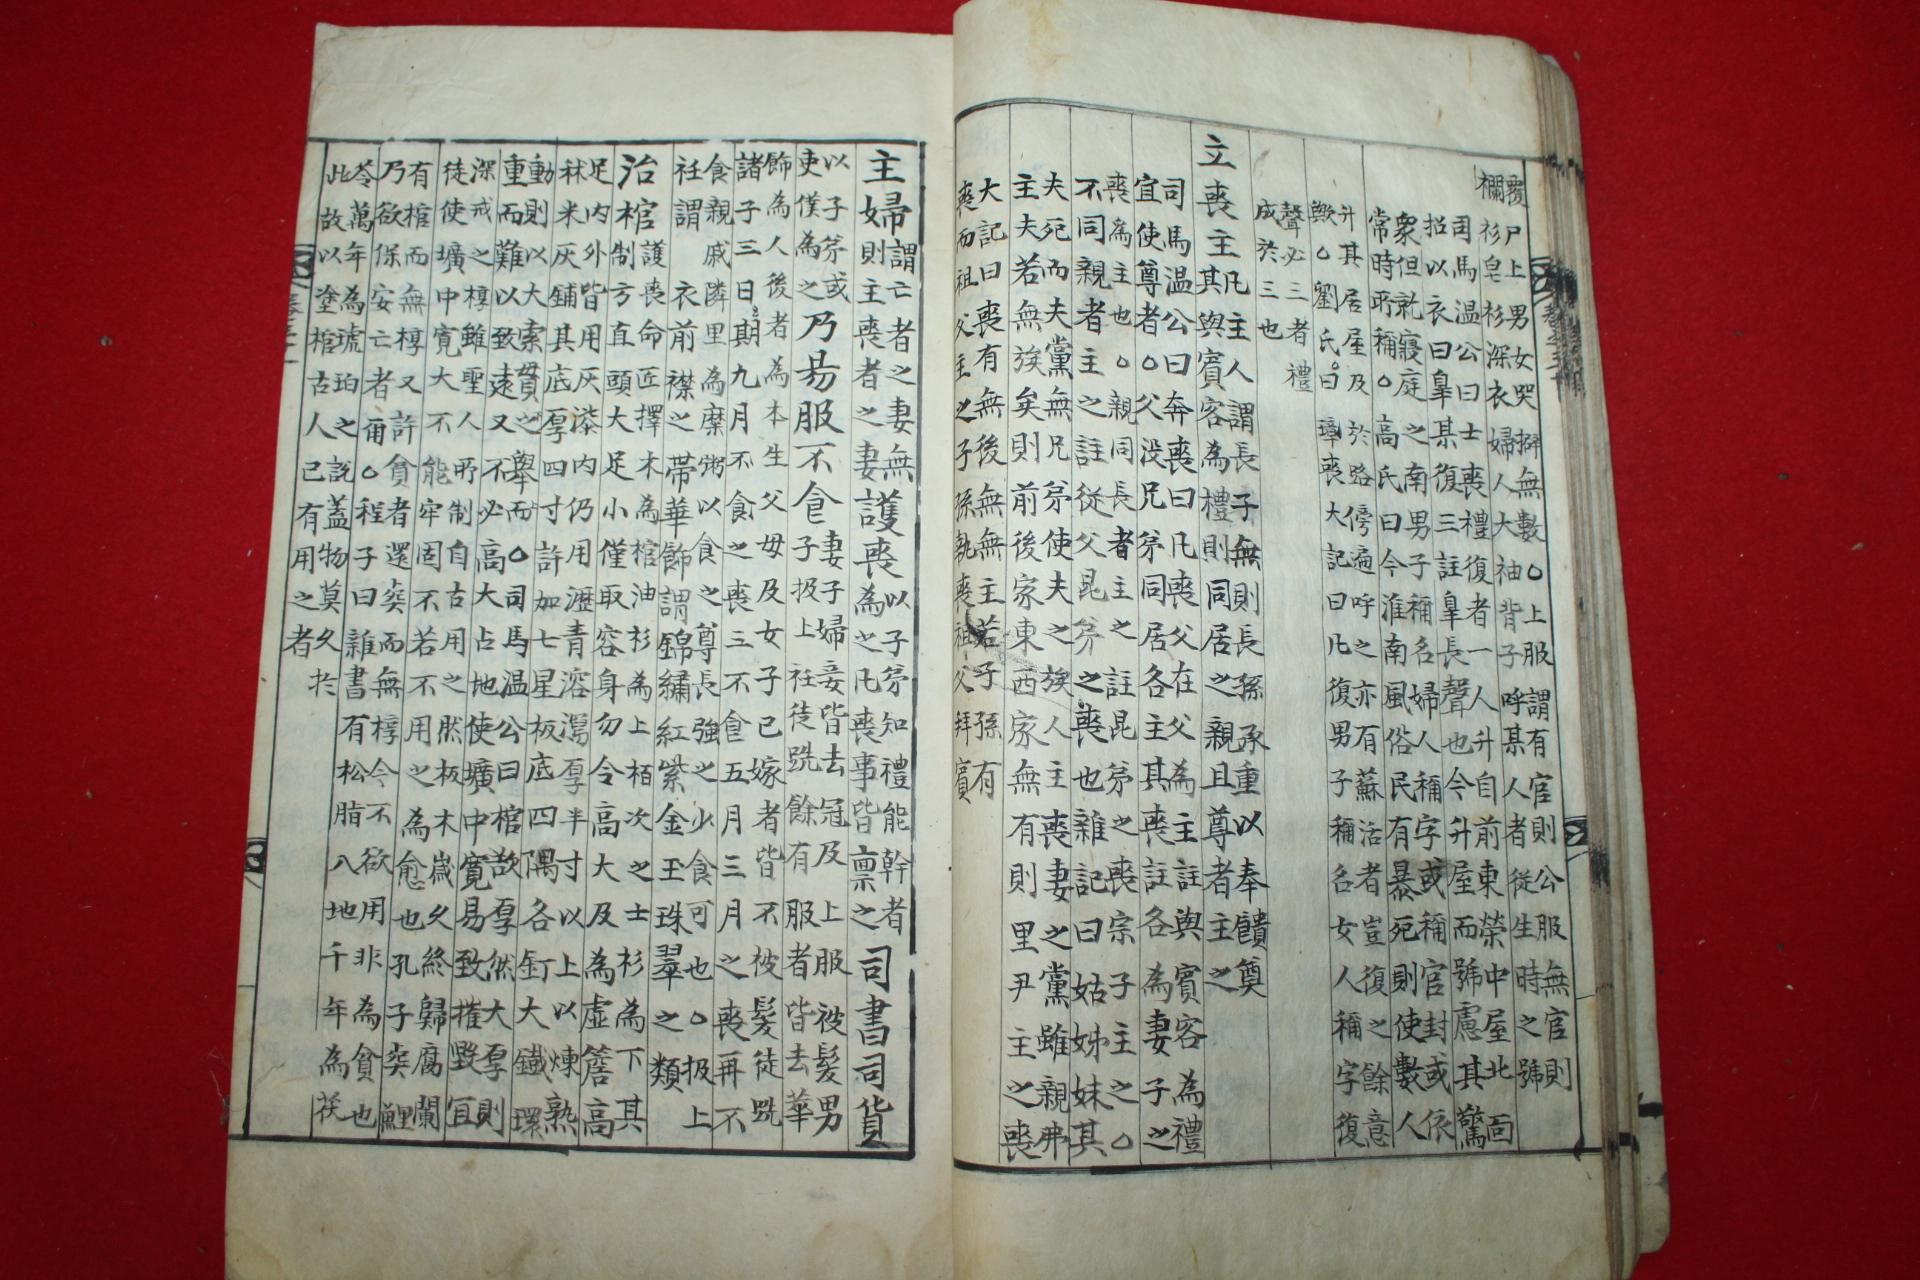 覆尸上男女哭擗無數○上服謂有官則公服無官則
襴衫皂衫深衣婦人大袖背子呼某人者從生時之號
司馬温公曰士喪禮復者一人升自前東榮中屋北面
招以衣曰臯某復三註臯長聲也今升屋而號慮其驚
衆但就寢庭之南男子稱名婦人稱字或稱官封或依
常時所稱○高氏曰今淮南風俗民有暴死則使數人
升其居屋及於路傍遍呼之亦有蘇活者豈復之餘意
歟○劉氏曰璋喪大記曰凡復男子稱名女人稱字復
聲必三者禮
成於三也
立喪主凡主人謂長子無則長孫承重以奉饋奠
其與賓客為禮則同居之親且尊者主之
司馬温公曰奔喪曰凡喪父在父為主註與賓客為禮
宜使尊者○父没兄弟同居各主其喪註各為妻子之
喪為主也○親同長者主之註昆弟之喪宗子主之○
不同親者主之註從父昆弟之喪也雜記曰姑姊妹其
夫死而夫黨無兄弟使夫之族人主喪妻之黨雖親弗
主夫若無族矣則前後家東西家無有則里尹主之喪
大記曰喪有無後無無主若子孫有
喪而祖父主之子孫執喪祖父拜賓
主婦謂亡者之妻無
則主喪者之妻
護喪以子弟知禮能幹者
為之凡喪事皆禀之
司書司貨
以子弟或
吏僕為之
乃易服不食妻子婦妾皆去冠及上服被髮男
子扱上衽徒跣餘有服者皆去華
飾為人後者為本生父母及女子已嫁者皆不被髮徒跣
諸子三日期九月不食之喪三不食五月三月之喪再不
食親戚隣里為糜粥以食之尊長強之少食可也○扱上
衽謂衣前襟之帶華飾謂錦繡紅紫金玉珠翠之類
治棺護喪命匠擇木為棺油杉為上栢次之士杉為下其
制方直頭大足小僅取容身勿令高大及為虛簷高
足内外皆用灰漆内仍用瀝青溶瀉厚半寸以上以煉熟
秫米灰鋪其底厚四寸許加七星板底四隅各釘大鐵環
動則以大索貫之舉而○司馬温公曰棺欲厚然大厚則
重而難以致遠又不必高大占地使壙中寬易致摧毀宜
深戒之椁雖聖人所制自古用之然板木歲久終歸腐爛
徒使壙中寬大不能牢固不若不用之為愈也孔子葬鯉
有棺而無椁又許貧者還葬而無椁今不欲用非為貧也
乃欲保安亡者爾○程子曰雜書有松脂入地千年為茯
苓萬年為琥珀之說蓋物莫久於
此故以塗棺古人已有用之者